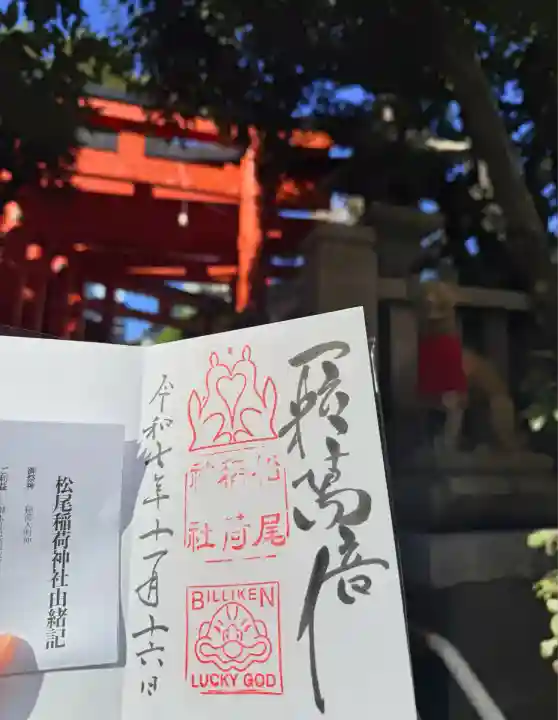 一粒萬倍
松尾
稲荷
神社
BILLIKEN
LUCKY GOD
令和七年十一月十六日
松尾稲荷神社由緒記
御祭神